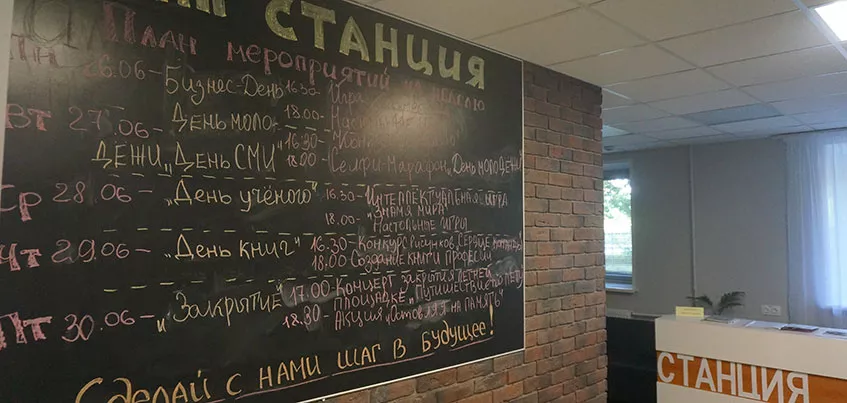 СТАНЦИЯ
План мероприятий на неделю
26.06 - Бизнес-День 16.30 - Игра
Вт 27.06 - День моло- 18.00 -
дежи „День СМИ" 16.30 -
18.00 - Селфи-Марафон „День молодежи
Ср 28.06 - „День учёного" 16.30 - Интеллектуальная игра
„Знамя мира"
18.00 - Настольные игры
Чт 29.06 - „День книг" 16.30 - Конкурс рисунков
18.00 Создание книги професий
Пт 30.06 - „Закрытие" 17.00 - Концерт закрытия летней
площадке „Путешествие по лету
18.30 - Акция „Оставляй на память"
Сделай с нами шаг в будущее!
СТАНЦИЯ